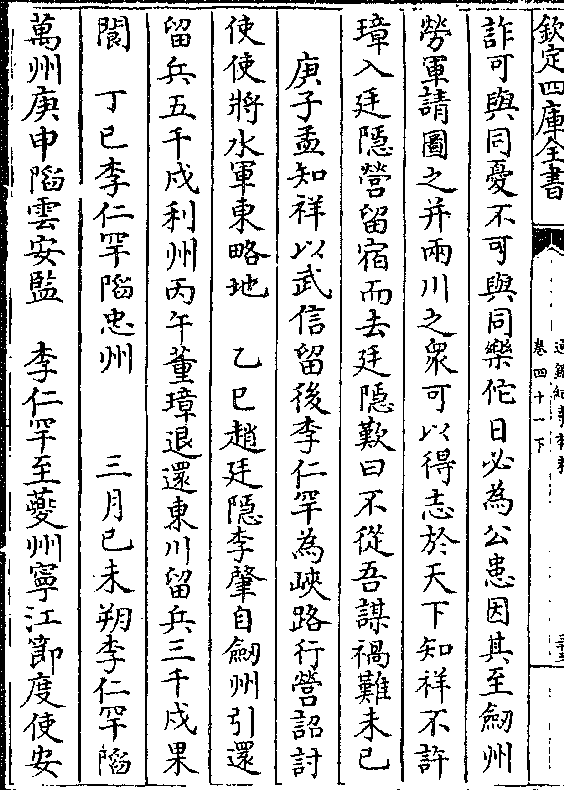 欽定四庫全書
卷四十一下
詐可與同憂不可與同樂佗日必為公患因其至劔州
勞軍請圖之并兩川之衆可以得志於天下知祥不許
璋入廷隱營留宿而去廷隱歎曰不從吾謀禍難未已
庚子孟知祥以武信留後李仁罕為峽路行營詔討
使使將水軍東略地　乙巳趙廷隱李肇自劔州引還
留兵五千戍利州丙午董璋退還東川留兵三千戍果
閬　丁巳李仁罕䧟忠州　三月己未朔李仁罕䧟
萬州庚申䧟雲安監　李仁罕至夔州寧江節度使安